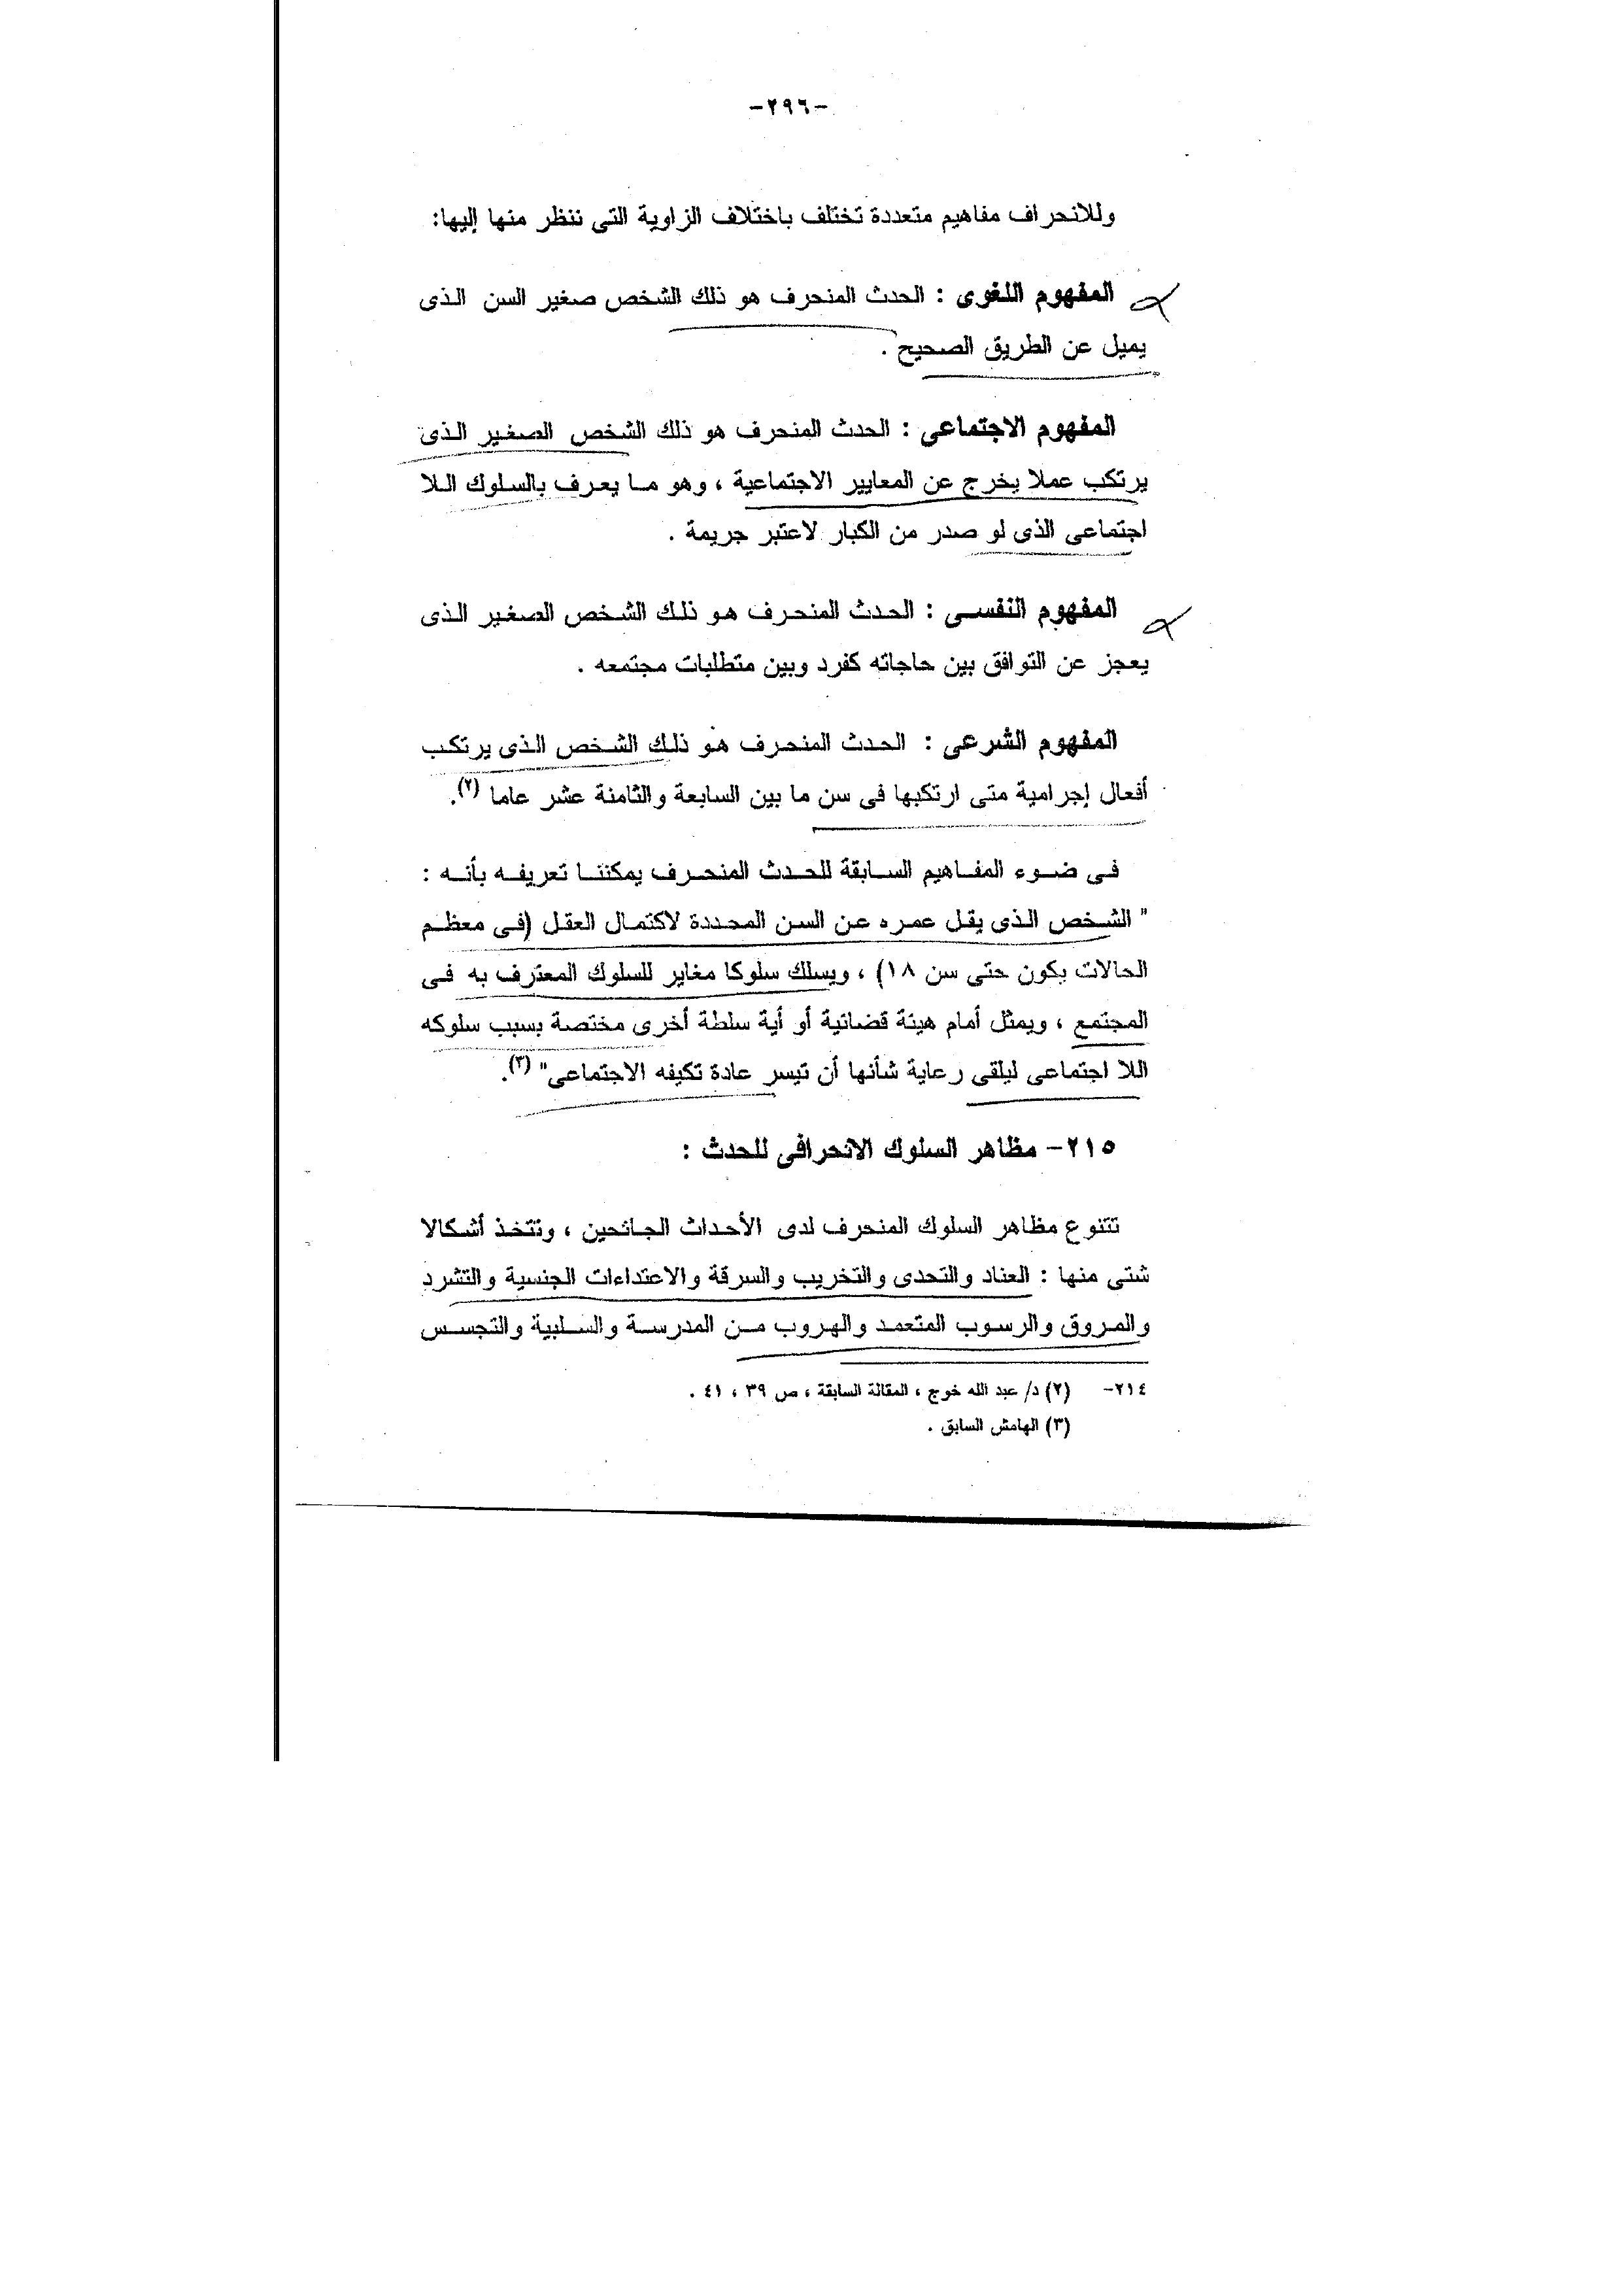 -٢٩٦-
وللانحراف مفاهيم متعددة تختلف باختلاف الزاوية التى ننظر منها إليها:
المفهوم اللغوى : الحدث المنحرف هو ذلك الشخص صغير السن الذى
يميل عن الطريق الصحيح .
المفهوم الاجتماعى : الحدث المنحرف هو ذلك الشخص الصغير الذى
يرتكب عملا يخرج عن المعايير الاجتماعية ، وهو ما يعرف بالسلوك اللا
اجتماعى الذى لو صدر من الكبار لاعتبر جريمة .
المفهوم النفسى : الحدث المنحرف هو ذلك الشخص الصغير الذى
يعجز عن التوافق بين حاجاته كفرد وبين متطلبات مجتمعه .
المفهوم الشرعى : الحدث المنحرف هو ذلك الشخص الذى يرتكب
أفعال إجرامية متى ارتكبها فى سن ما بين السابعة والثامنة عشر عاما (٢).
فى ضوء المفاهيم السابقة للحدث المنحرف يمكننا تعريفه بأنه :
" الشخص الذى يقل عمره عن السن المحددة لاكتمال العقل (فى معظم
الحالات يكون حتى سن ١٨) ، ويسلك سلوكا مغاير للسلوك المعترف به فى
المجتمع ، ويمثل أمام هيئة قضائية أو أية سلطة أخرى مختصة بسبب سلوكه
اللا اجتماعى ليلقى رعاية شأنها أن تيسر عادة تكيفه الاجتماعى" (٣).
٢١٥- مظاهر السلوك الانحرافى للحدث :
تتنوع مظاهر السلوك المنحرف لدى الأحداث الجانحين ، وتتخذ أشكالا
شتى منها : العناد والتحدى والتخريب والسرقة والاعتداءات الجنسية والتشرد
والمروق والرسوب المتعمد والهروب من المدرسة والسلبية والتجسس
٢١٤- (٢) د/ عبد الله خوج ، المقالة السابقة ، ص ٣٩ ، ٤١ .
(٣) الهامش السابق .